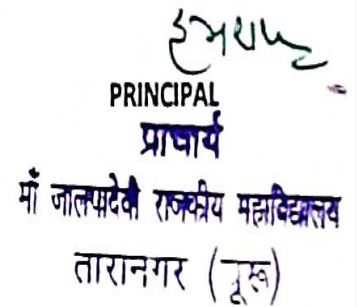 PRINCIPAL
प्राचार्य
माँ जालपादेवी राजकीय महाविद्यालय
तारानगर (चूरू)